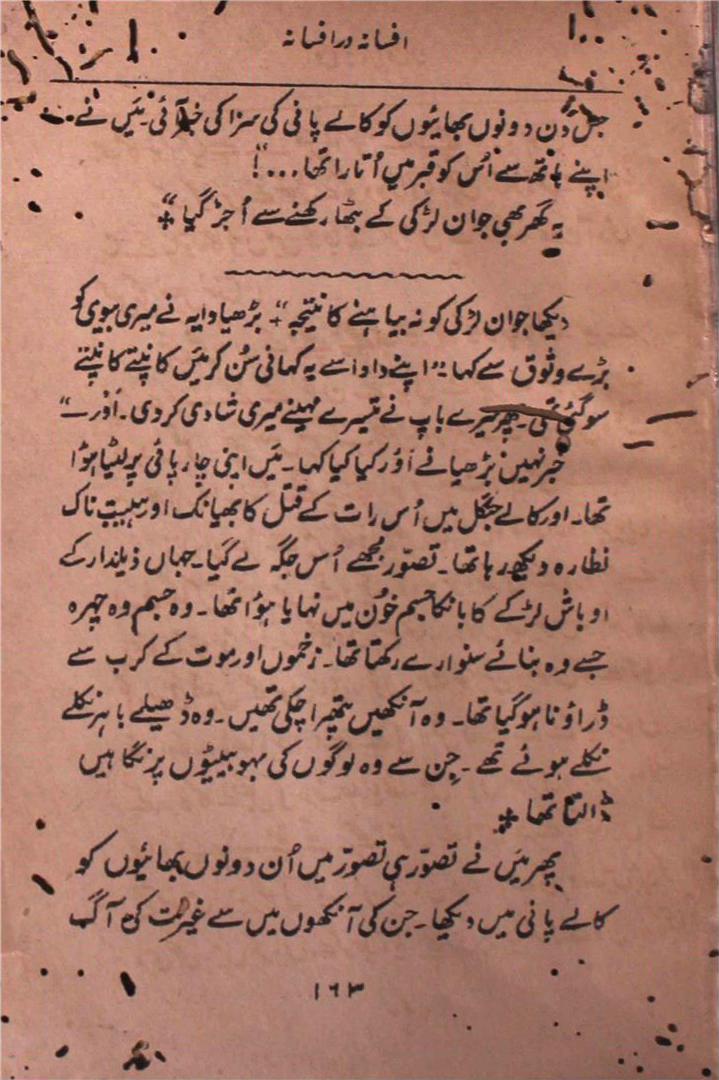 افسانہ در افسانہ
جس دن دونوں بھائیوں کو کالے پانی کی سزا کی خبر آئی۔ میَں نے
اپنے ہاتھ سے اُس کو قبر میں اُتارا تھا...!"
یہ گھر بھی جوان لڑکی کے بٹھا رکھنے سے اُجڑ گیا"+
دیکھا جوان لڑکی کو نہ بیاہنے کا نتیجہ"+ بڑھیا دایہ نے میری بیوی کو
بڑے وثوق سے کہا:۔"اپنے دادا سے یہ کہانی سُن کر میَں کانپتے کانپتے
سو گئی تھی۔ پھر میرے باپ نے تیسرے مہینے میری شادی کر دی۔ اَور—"
خبر نہیں بڑھیا نے اَور کیا کیا کہا۔ میَں اپنی چارپائی پر لیٹا ہوُا
تھا۔ اور کالے جنگل میں اُس رات کے قتل کا بھیانک اور ہیبت ناک
نظارہ دیکھ رہا تھا۔ تصوّر مجھے اُس جگہ لے گیا۔ جہاں ذیلدار کے
اوباش لڑکے کا بانکا جسم خوُن میں نہایا ہوُا تھا۔ وہ جسم وہ چہرہ
جسے وہ بنائے سنوارے رکھتا تھا۔ زخموں اور موت کے کرب سے
ڈراؤنا ہو گیا تھا۔ وہ آنکھیں پتھرا چکی تھیں۔ وہ ڈھیلے باہر نکلے
نکلے ہوئے تھے۔ جِن سے وہ لوگوں کی بہو بیٹیوں پر نگاہیں
ڈالتا تھا+
پھر میَں نے تصوّر ہی تصوّر میں اُن دونوں بھائیوں کو
کالے پانی میں دیکھا۔ جن کی آنکھوں میں سے غیرت کی آگ
۱۶۳